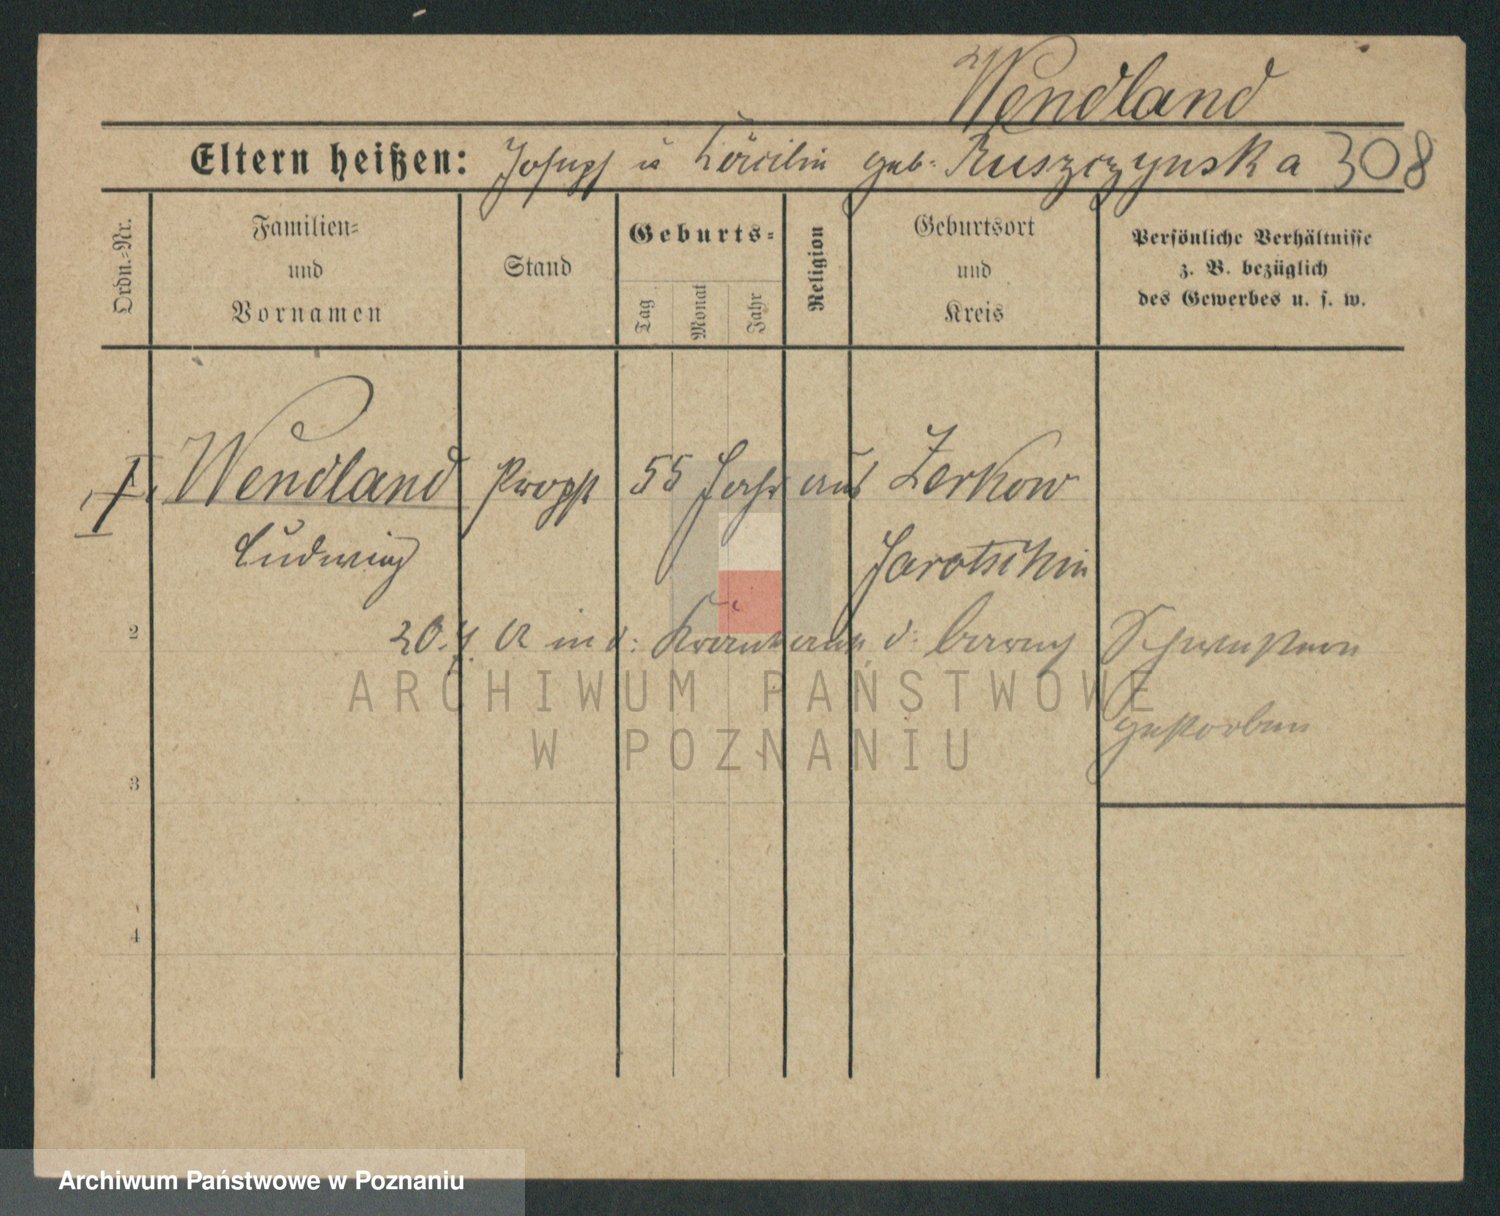 Wendland
Eltern heißen: Joseph u Cäcilie geb. Ruszczynska 308
Ordn.-Nr.
Familien=
und
Vornamen
Stand
Geburts=
Tag
Monat
Jahr
Religion
Geburtsort
und
Kreis
Persönliche Verhältnisse
z. B. bezüglich
des Gewerbes u. s. w.
Wendland Propst 55 Jahr aus Zerkow
Ludwig Jarotschin
2 20.7. in d: Krankenan d: barmh Schwestern
gestorben
3
4
ARCHIWUM PAŃSTWOWE
W POZNANIU
Archiwum Państwowe w Poznaniu